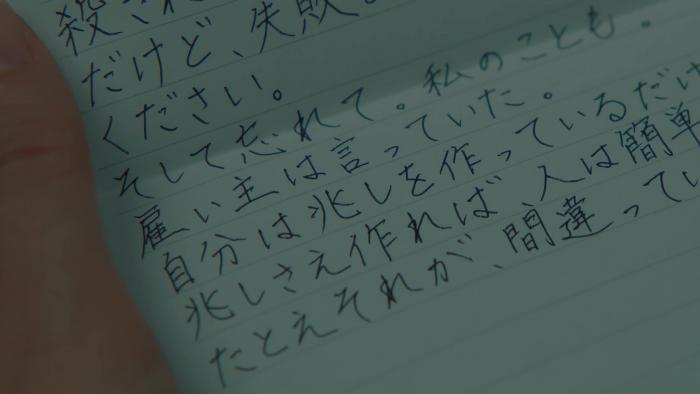 殺され
だけど、失敗
ください。
そして忘れて。私のことも。
雇い主は言っていた。
自分は兆しを作っているだけ
兆しさえ作れば、人は簡単
たとえそれが、間違ってい